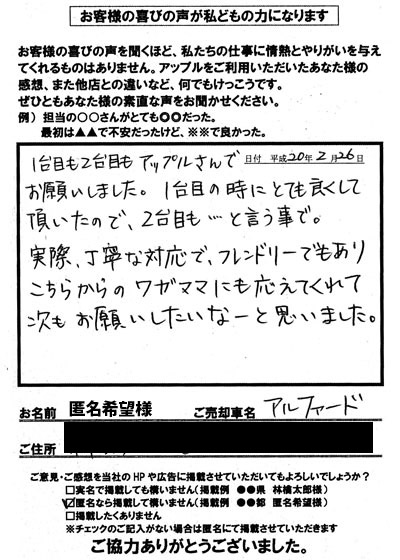 お客様の喜びの声が私どもの力になります
お客様の喜びの声を聞くほど、私たちの仕事に情熱とやりがいを与え
てくれるものはありません。アップルをご利用いただいたあなた様の
感想、また他店との違いなど、何でもけっこうです。
ぜひともあなた様の素直な声をお聞かせください。
例）担当の○○さんがとても◎◎だった。
最初は▲▲で不安だったけど、※※で良かった。
日付 平成20年2月26日
1台目も2台目もアップルさんで
お願いしました。1台目の時にとても良くして
頂いたので、2台目も…と言う事で。
実際、丁寧な対応で、フレンドリーでもあり
こちらからのワガママにも応えてくれて
次もお願いしたいなーと思いました。
お名前 匿名希望様 ご売却車名 アルファード
ご住所
ご意見・ご感想を当社のHPや広告に掲載させていただいてもよろしいでしょうか？
□実名で掲載しても構いません（掲載例 ●●県 林檎太郎様）
☑匿名なら掲載して構いません（掲載例 ●●都 匿名希望様）
□掲載したくありません
※チェックのご記入がない場合は匿名にて掲載させていただきます
ご協力ありがとうございました。